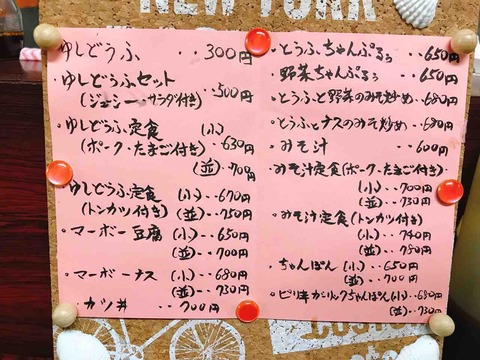 NEW YORK
ゆしどうふ ‥300円
ゆしどうふセット
(ジューシー・サラダ付き) ‥500円
・ゆしどうふ定食 (小)
(ポーク・たまご付き) ‥630円
(並)‥700円
・ゆしどうふ定食 (小)‥670円
(トンカツ付き) (並)‥750円
・マーボー豆腐 (小)‥650円
(並)‥700円
・マーボーナス (小)‥680円
(並)‥730円
・カツ丼 ‥700円
・とうふちゃんぷるぅ ‥650円
・野菜ちゃんぷるぅ ‥650円
・とうふと野菜のみそ炒め‥680円
・とうふとナスのみそ炒め‥680円
・みそ汁 ‥600円
・みそ汁定食(ポーク・たまご付き)
(小)‥700円
(並)‥730円
・みそ汁定食(トンカツ付き)
(小)‥740円
(並)‥780円
・ちゃんぽん (小)‥650円
(並)‥700円
・ピリ辛ガーリックちゃんぽん(小)‥680円
(並)‥730円